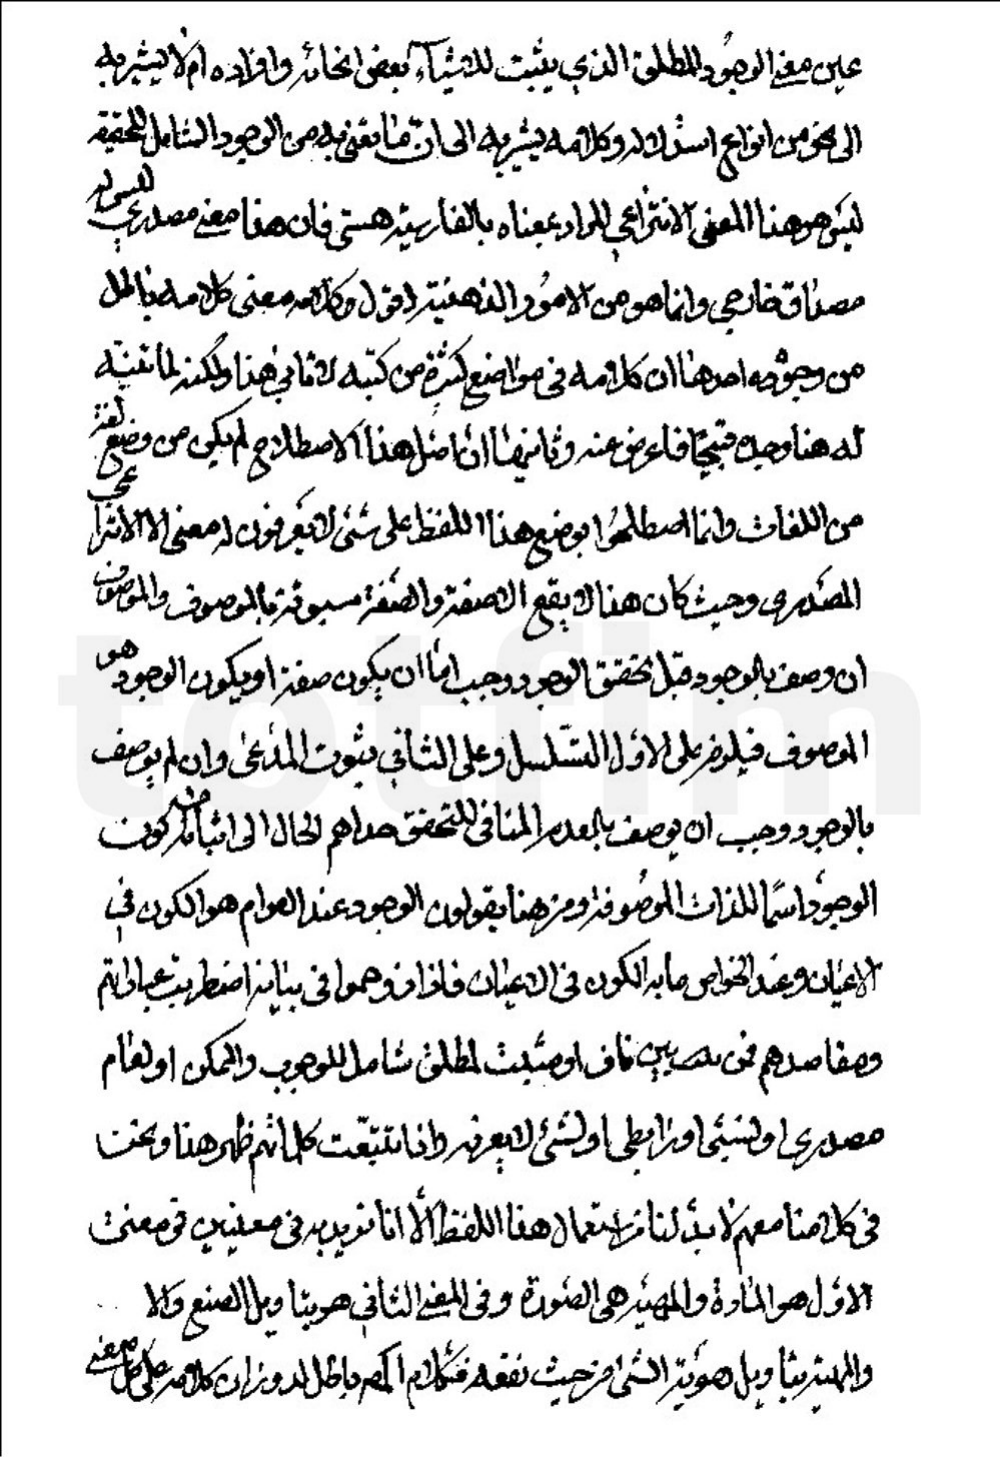 عين معنى الوجود المطلق الذي يثبت للاشياء بعض انحائه وافراده ام لا يشير به
الى نحو من انواع استدلاله وكلامه يشير به الى ان ما يعنى به من الوجود الشامل للحقيقة
ليس هو هذا المعنى الانتزاعي المراد بمعناه بالفارسية هستي فان هذا معنى مصدري ليس له
مصداق خارجي وانما هو من الامور الذهنية اقول وكلامه معنى كلامه باطل
من وجوه احدها ان كلامه في مواضع كثيرة من كتبه لا ينافي هذا ولكنه لما تنبه
له هنا وجده قبيحا فاعرض عنه وثانيها ان اصل هذا الاصطلاح لم يكن من وضع لغة
من اللغات وانما اصطلحوا بوضع هذا اللفظ على شئ لا يعرفون له معنى الا الانتزاعي
المصدري وحيث كان هذا لا يقع الا صفة والصفة مسبوقة بالموصوف والموصوف
ان وصف بالوجود قبل تحقق الوجود وجب اما ان يكون صفة او يكون الوجود هو
الموصوف فيلزم على الاول التسلسل وعلى الثاني ثبوت المدعى وان لم يوصف
بالوجود وجب ان يوصف بالعدم المنافي للتحقق حداهم الحال الى اثبات كون
الوجود اسما للذات الموصوفة ومن هنا يقولون الوجود عند العوام هو الكون في
الاعيان وعند الخواص ما به الكون في الاعيان فاذا خاضوا في بيانه اضطربت عباراتهم
ومقاصدهم فمن بين ناف او مثبت لمطلق شامل للوجوب والممكن او لعام
مصدري او لنسبي او رابطي او لشئ لا يعرفه واذا تتبعت كلماتهم ظهر هذا ونحن
في كلامنا معهم لا بد لنا من استعمال هذا اللفظ الا انا نريد به في معنيين في معنى
الاول هو المادة والمهية هي الصورة وفي المعنى الثاني هو بتاويل الصنع والا
والمهية بتاويل هوية الشئ من حيث نفسه فكلام المصـ باطل لدوران كلامه على كل معنى